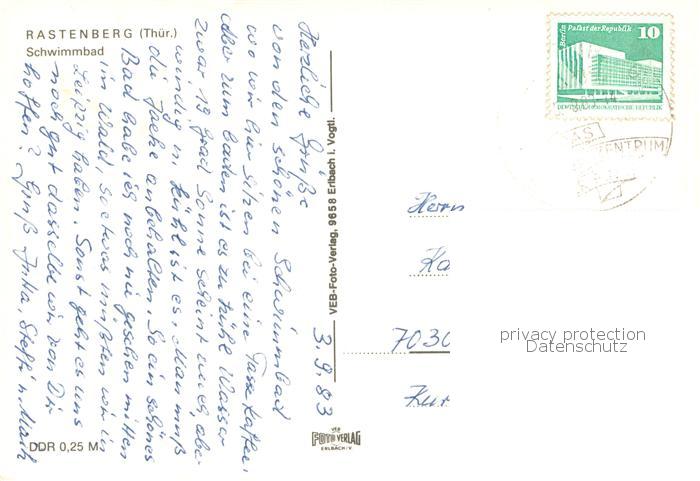 RASTENBERG (Thür.)
Schwimmbad
Herzliche Grüße
von den schönen Schwimmbad
wo wir hier sitzen bei eine Tasse Kaffee,
aber zum baden ist es zu kühl Wasser
zwar 19 Grad Sonne scheint auch, aber
windig u. kühl ist es, Man muß
die Jacke anbehalten. So ein schönes
Bad habe ich noch nie gesehen mitten
im Wald, so etwas müßten wir in
Leipzig haben. Sonst geht es uns
noch gut dasselbe wir von Dir
hoffen? Gruß Jutta, Steffi u. Maik
3.9.83
DDR 0,25 M
VEB-Foto-Verlag, 9658 Erlbach i. Vogtl.
VEB
FOTO VERLAG
ERLBACH/V.
Berlin Palast der Republik
10
DEUTSCHE DEMOKRATISCHE REPUBLIK
DAS
ZENTRUM
Herrn
Ka
7030
privacy protection
Datenschutz
Kur